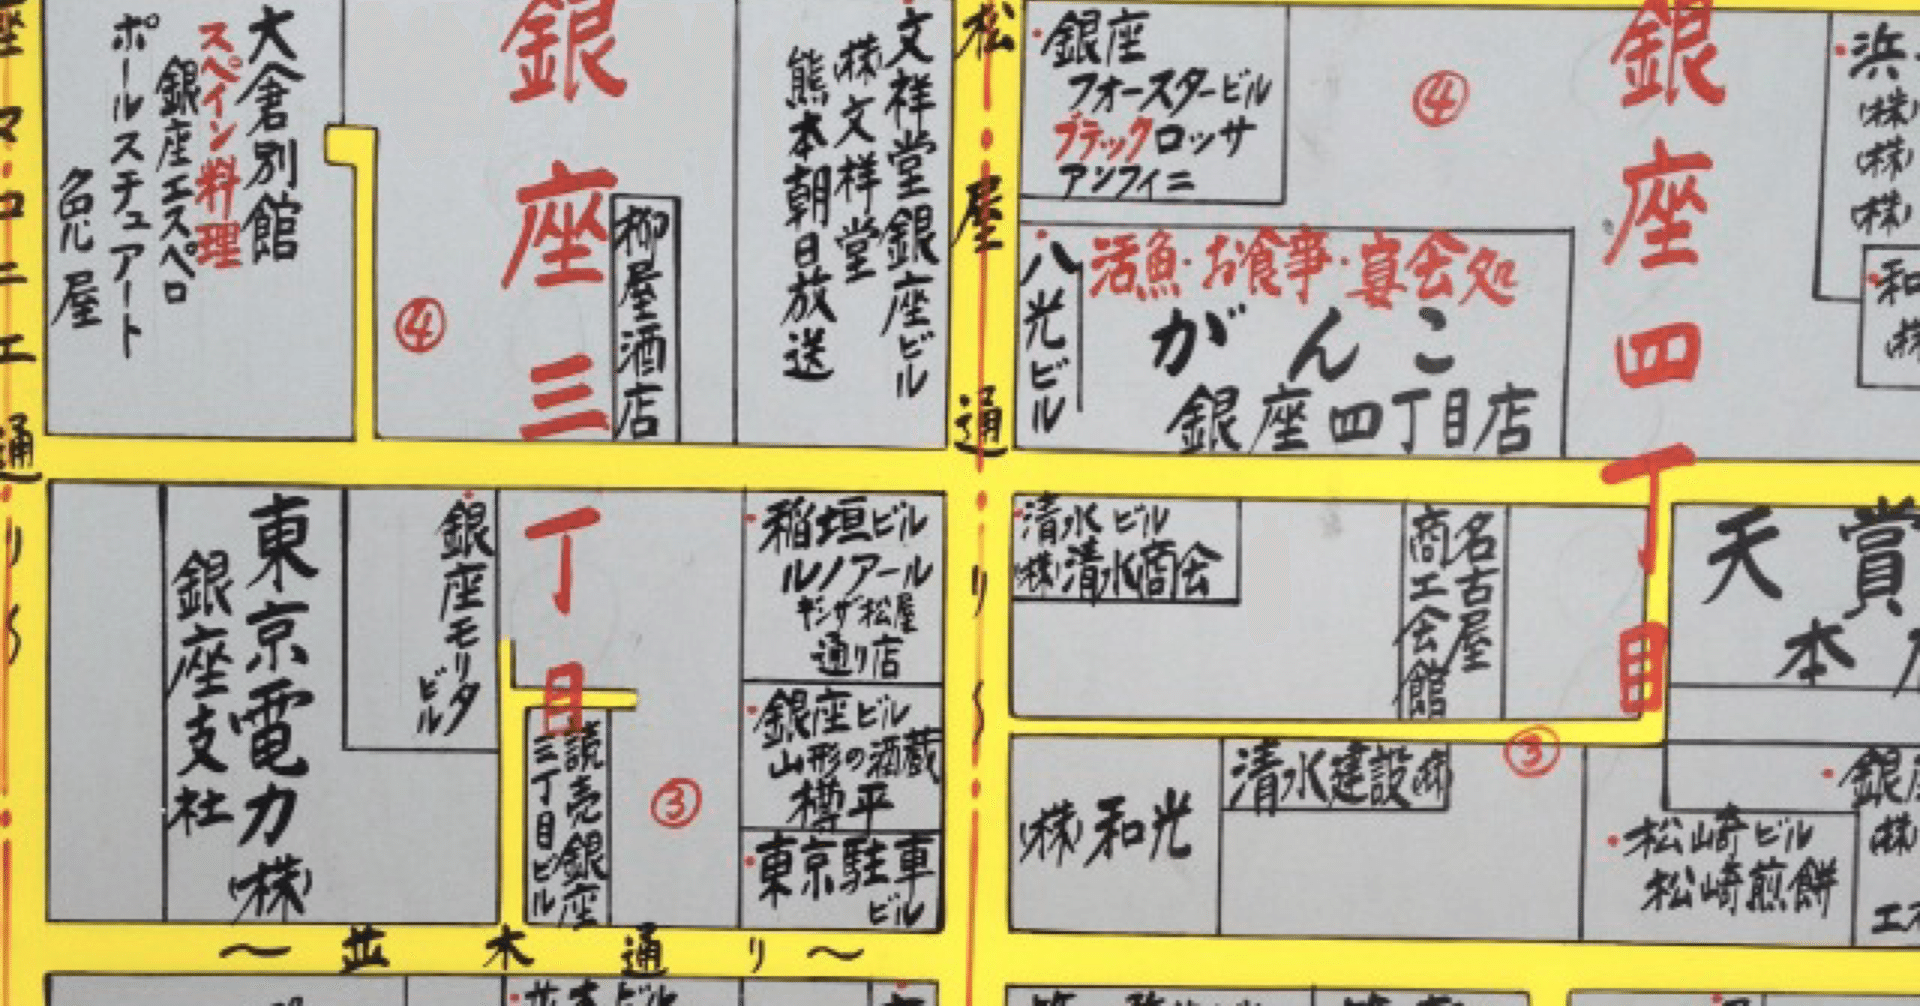 マロニエ通り〜
大倉別館
スペイン料理
銀座エスペロ
ポールスチュアート
屋
④
銀座三丁目
柳屋酒店
文祥堂銀座ビル
(株)文祥堂
熊本朝日放送
松屋通り〜
銀座
フォースタービル
ブラックロッサ
アンフィニ
④
銀座四丁目
八光ビル
活魚・お食事・宴会処
がんこ
銀座四丁目店
浜
(株)
(株)
(株)
和
(株
東京電力(株)
銀座支社
銀座モリタ
ビル
読売銀座
三丁目ビル
③
稲垣ビル
ルノアール
ギンザ松屋
通り店
銀座ビル
山形の酒蔵
樽平
東京駐車
ビル
清水ビル
(株)清水商会
名古屋
商工会館
天賞
本
③
(株)和光
清水建設(株)
松崎ビル
松崎煎餅
銀座
(株)
〜並木通り〜